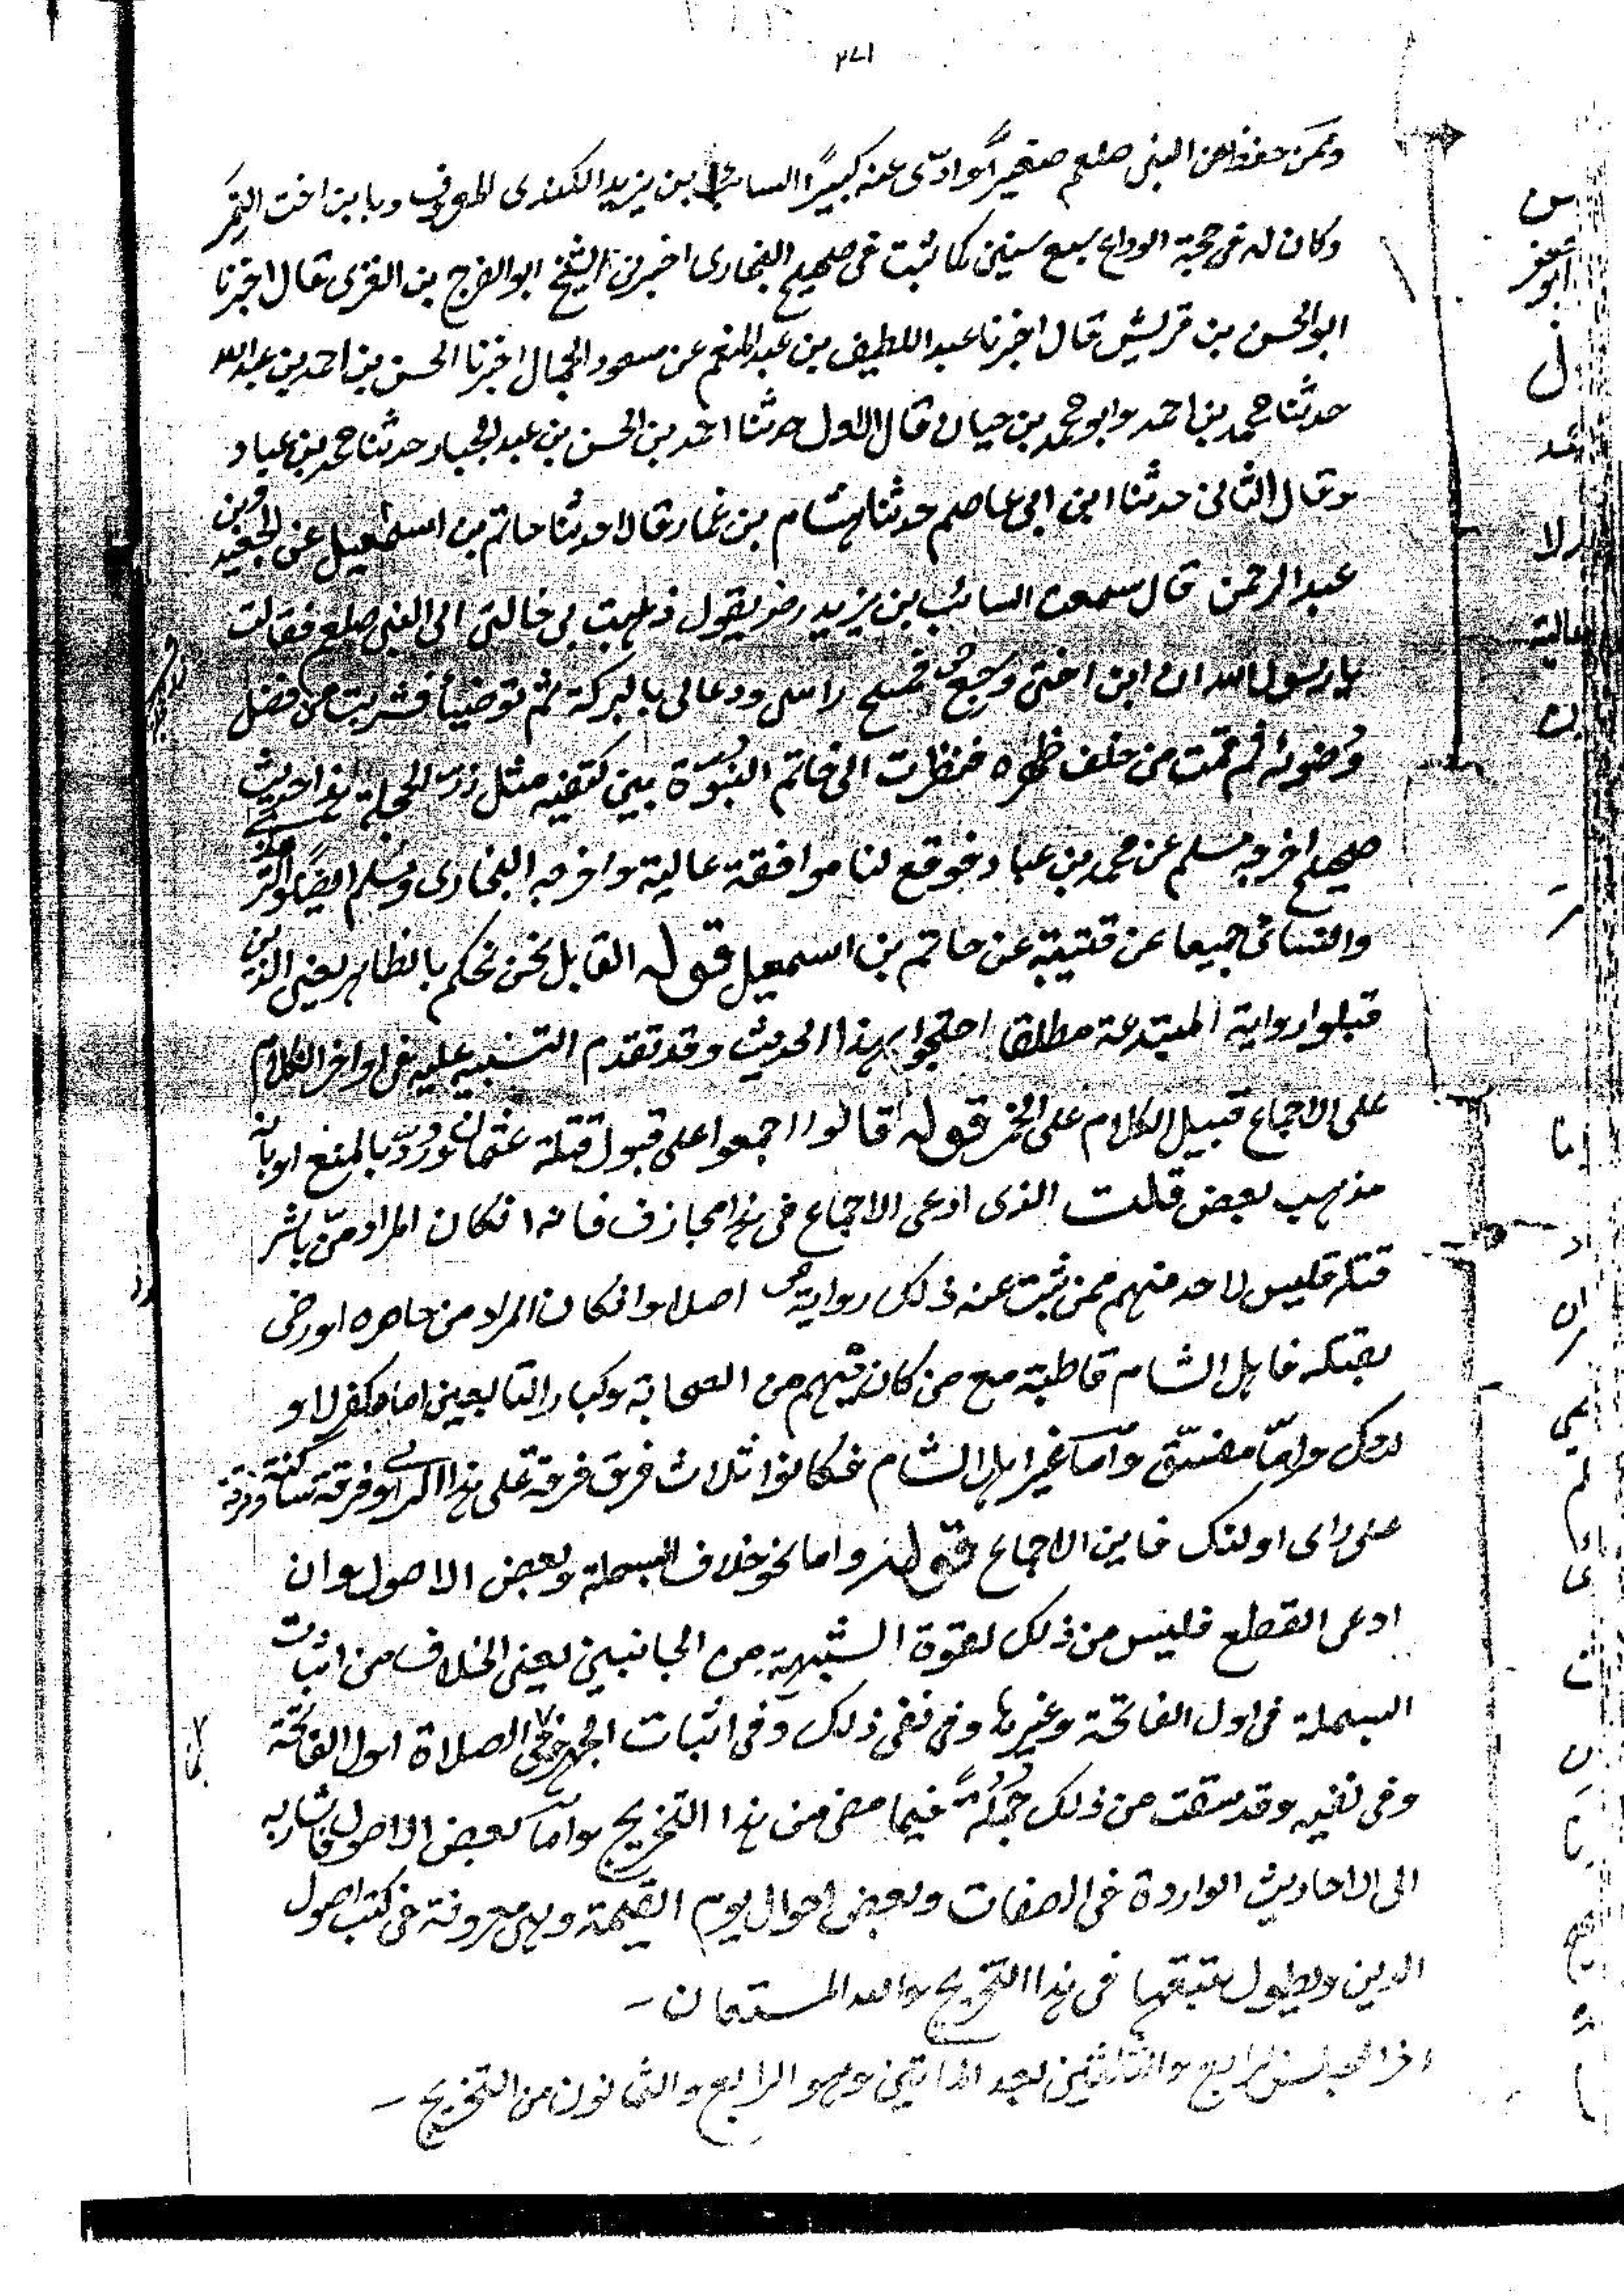 ٢٧١
وممن حفظ عن النبي صلعم صغيرا وادّى عنه كبيرًا السائب بن يزيد الكندى المعروف بابن اخت النمر
وكان له فى حجة الوداع سبع سنين كما ثبت فى صحيح البخارى اخبرنى الشيخ ابو الفرج بن الغزى قال اخبرنا
ابو الحسن بن قريش قال اخبرنا عبد اللطيف بن عبد المنعم عن مسعود الجمال اخبرنا الحسن بن احمد بن عبد الله
حدثنا محمد بن احمد وابو محمد بن حيان قال الاول حدثنا احمد بن الحسن بن عبد الجبار حدثنا محمد بن عباد
وقال الثانى حدثنا ابن ابى عاصم حدثنا هشام بن عمار قالا حدثنا حاتم بن اسمعيل عن الجعيد بن
عبد الرحمن قال سمعت السائب بن يزيد رضر يقول ذهبت بى خالتى الى النبى صلعم فقالت
يا رسول الله ان ابن اختى وجع فمسح راسى ودعا لى بالبركة ثم توضيأ فشربت من فضل
وضوئه ثم قمت من خلف ظهره فنظرت الى خاتم النبوّة بين كتفيه مثل زرّ الحجلة هذا حديث
صحيح اخرجه مسلم عن محمد بن عباد فوقع لنا موافقة عالية واخرجه البخارى ومسلم ايضًا والترمذى
والنسائى جميعا عن قتيبة عن حاتم بن اسمعيل قوله القابل نحن نحكم بالظاهر يعنى الذين
قبلوا رواية المبتدعة مطلقا احتجوا بهذا الحديث وقد تقدم التنبيه عليه فى اواخر الكلام
على الاجماع قبيل الكلام على الخبر قوله قالوا اجمعوا على قبول قتلة عثمان وردّ بالمنع او بانه
مذهب بعض قلت الذى ادعى الاجماع فى هذا مجازف فانه انكان المراد من باشر
قتله فليس لاحد منهم ممن ثبت عنه ذلك رواية اصلا وانكان المراد من حاصره او رضى
بقتله فاهل الشام قاطبة مع من كان فيهم من الصحابة وكبار التابعين اما مكفر لاو
لئك واما مفسّق وامّا غير اهل الشام فكانوا ثلاث فرق فرقة على هذا الراى وفرقة ساكتة وفرقة
على راى اولئك فاين الاجماع قوله واما نحو خلاف البسملة وبعض الاصول وان
ادعى القطع فليس من ذلك لقوة الشبهة من الجانبين يعنى الخلاف من اثبات
البسملة فى اول الفاتحة وغيرها وفى نفى ذلك وفى اثبات الجهر فى الصلاة اول الفاتحة
وفى نفيه وقد سقت من ذلك جملةً فيما مضى من هذا التخريج وامّا بعض الاصول فاشار به
الى الاحاديث الواردة فى الصفات وبعض احوال يوم القيمة وهى معروفة فى كتب اصول
الدين ويطول تتبعها فى هذا التخريج والله المستعان -
اخر المجلس الرابع والثلاثين بعد المائتين وهو الرابع والثمانون من التخريج -